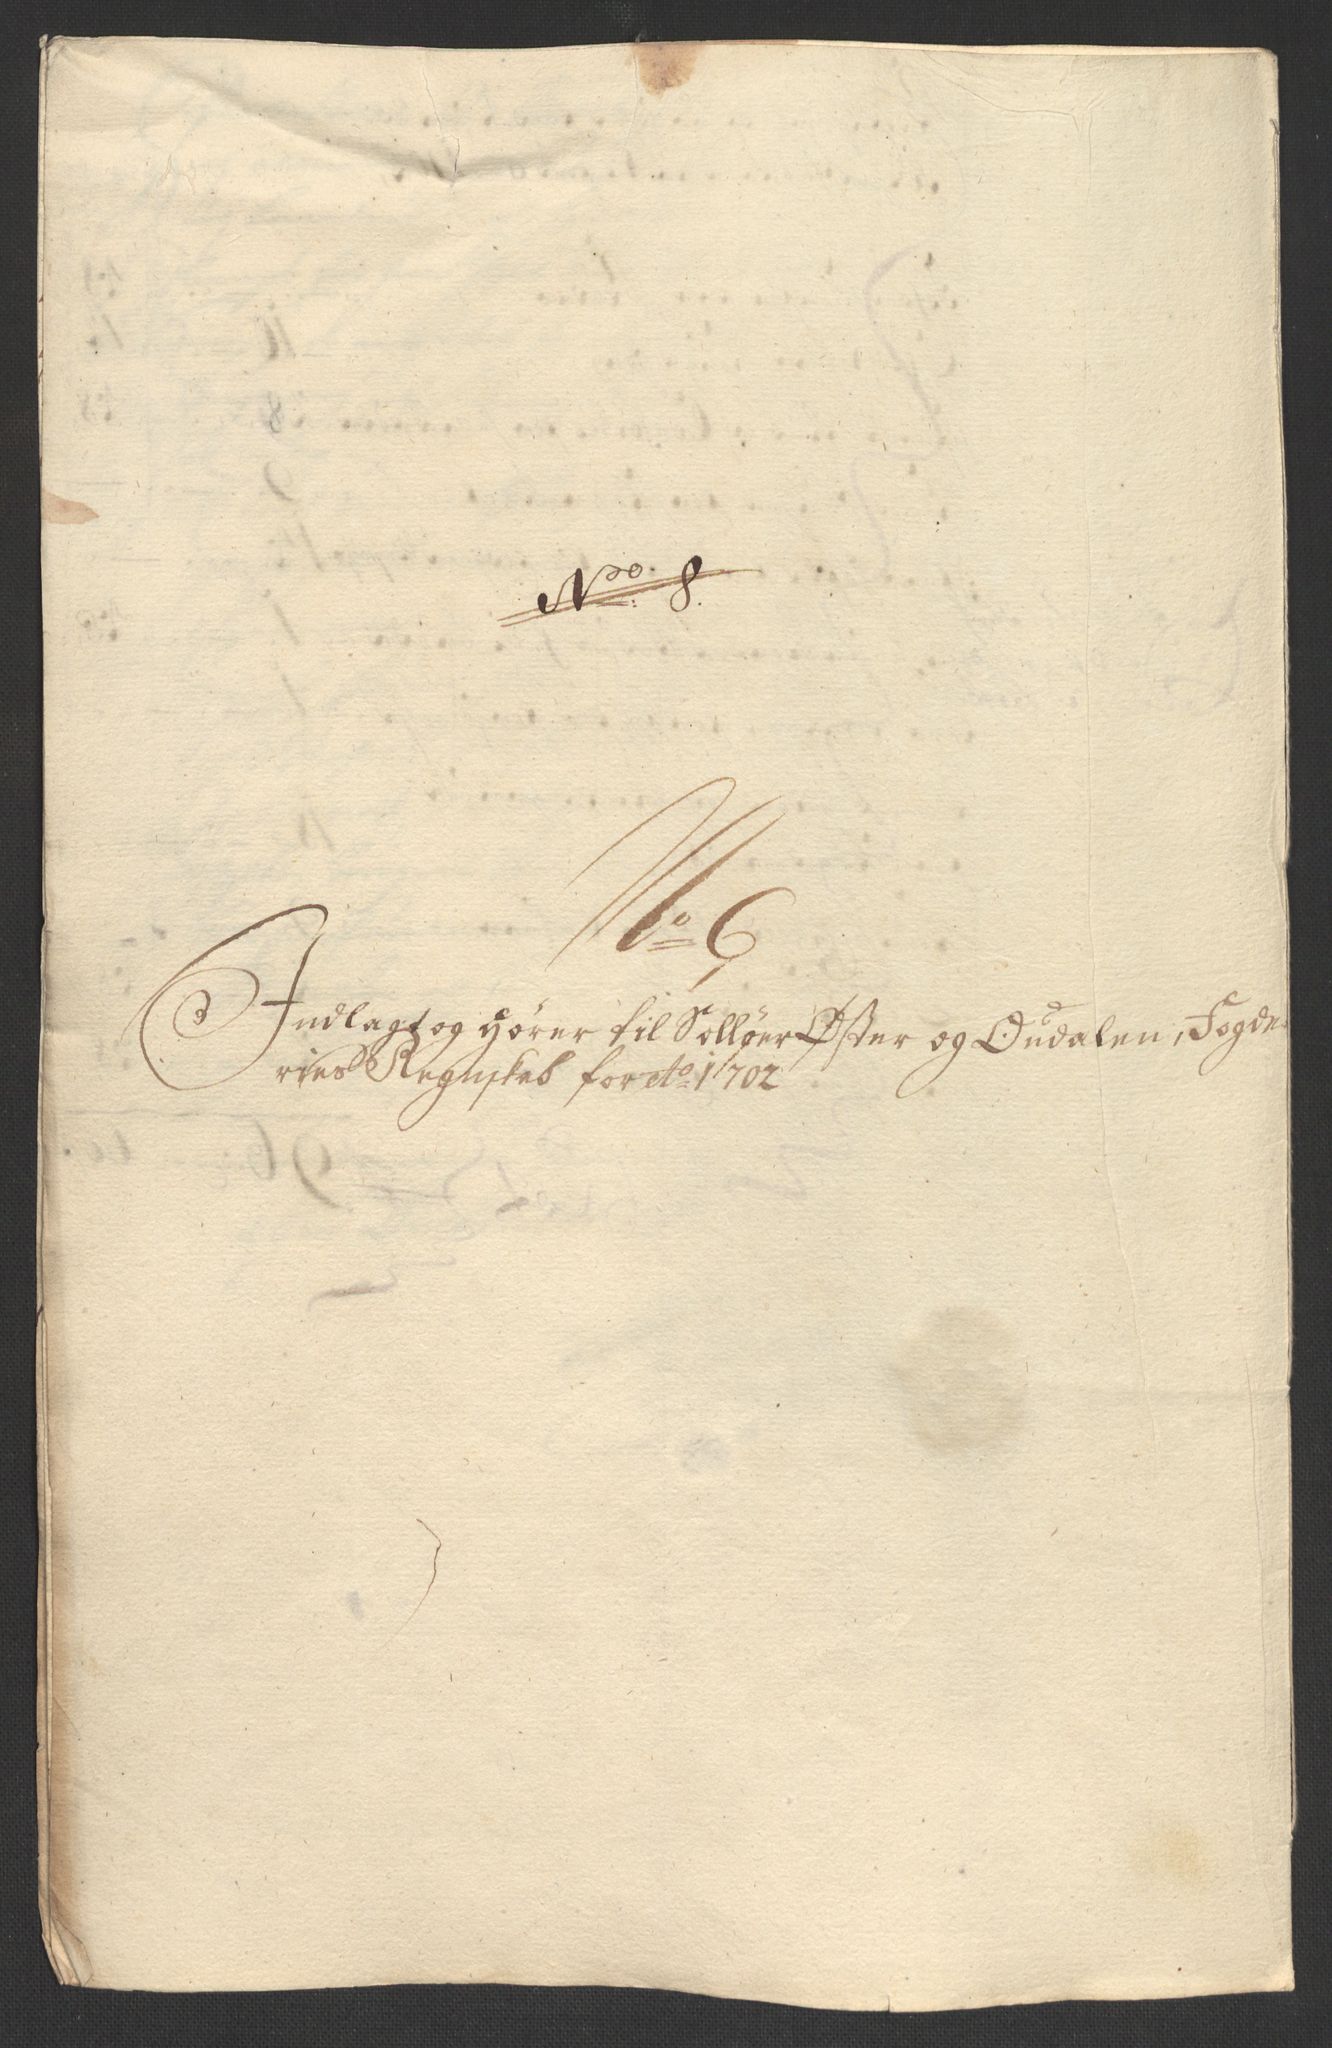 No: 8.
No 6
Indlagt og hører til Solløer Øster og Oudalen, Fogde-
ries Regnskab for Ao 1702